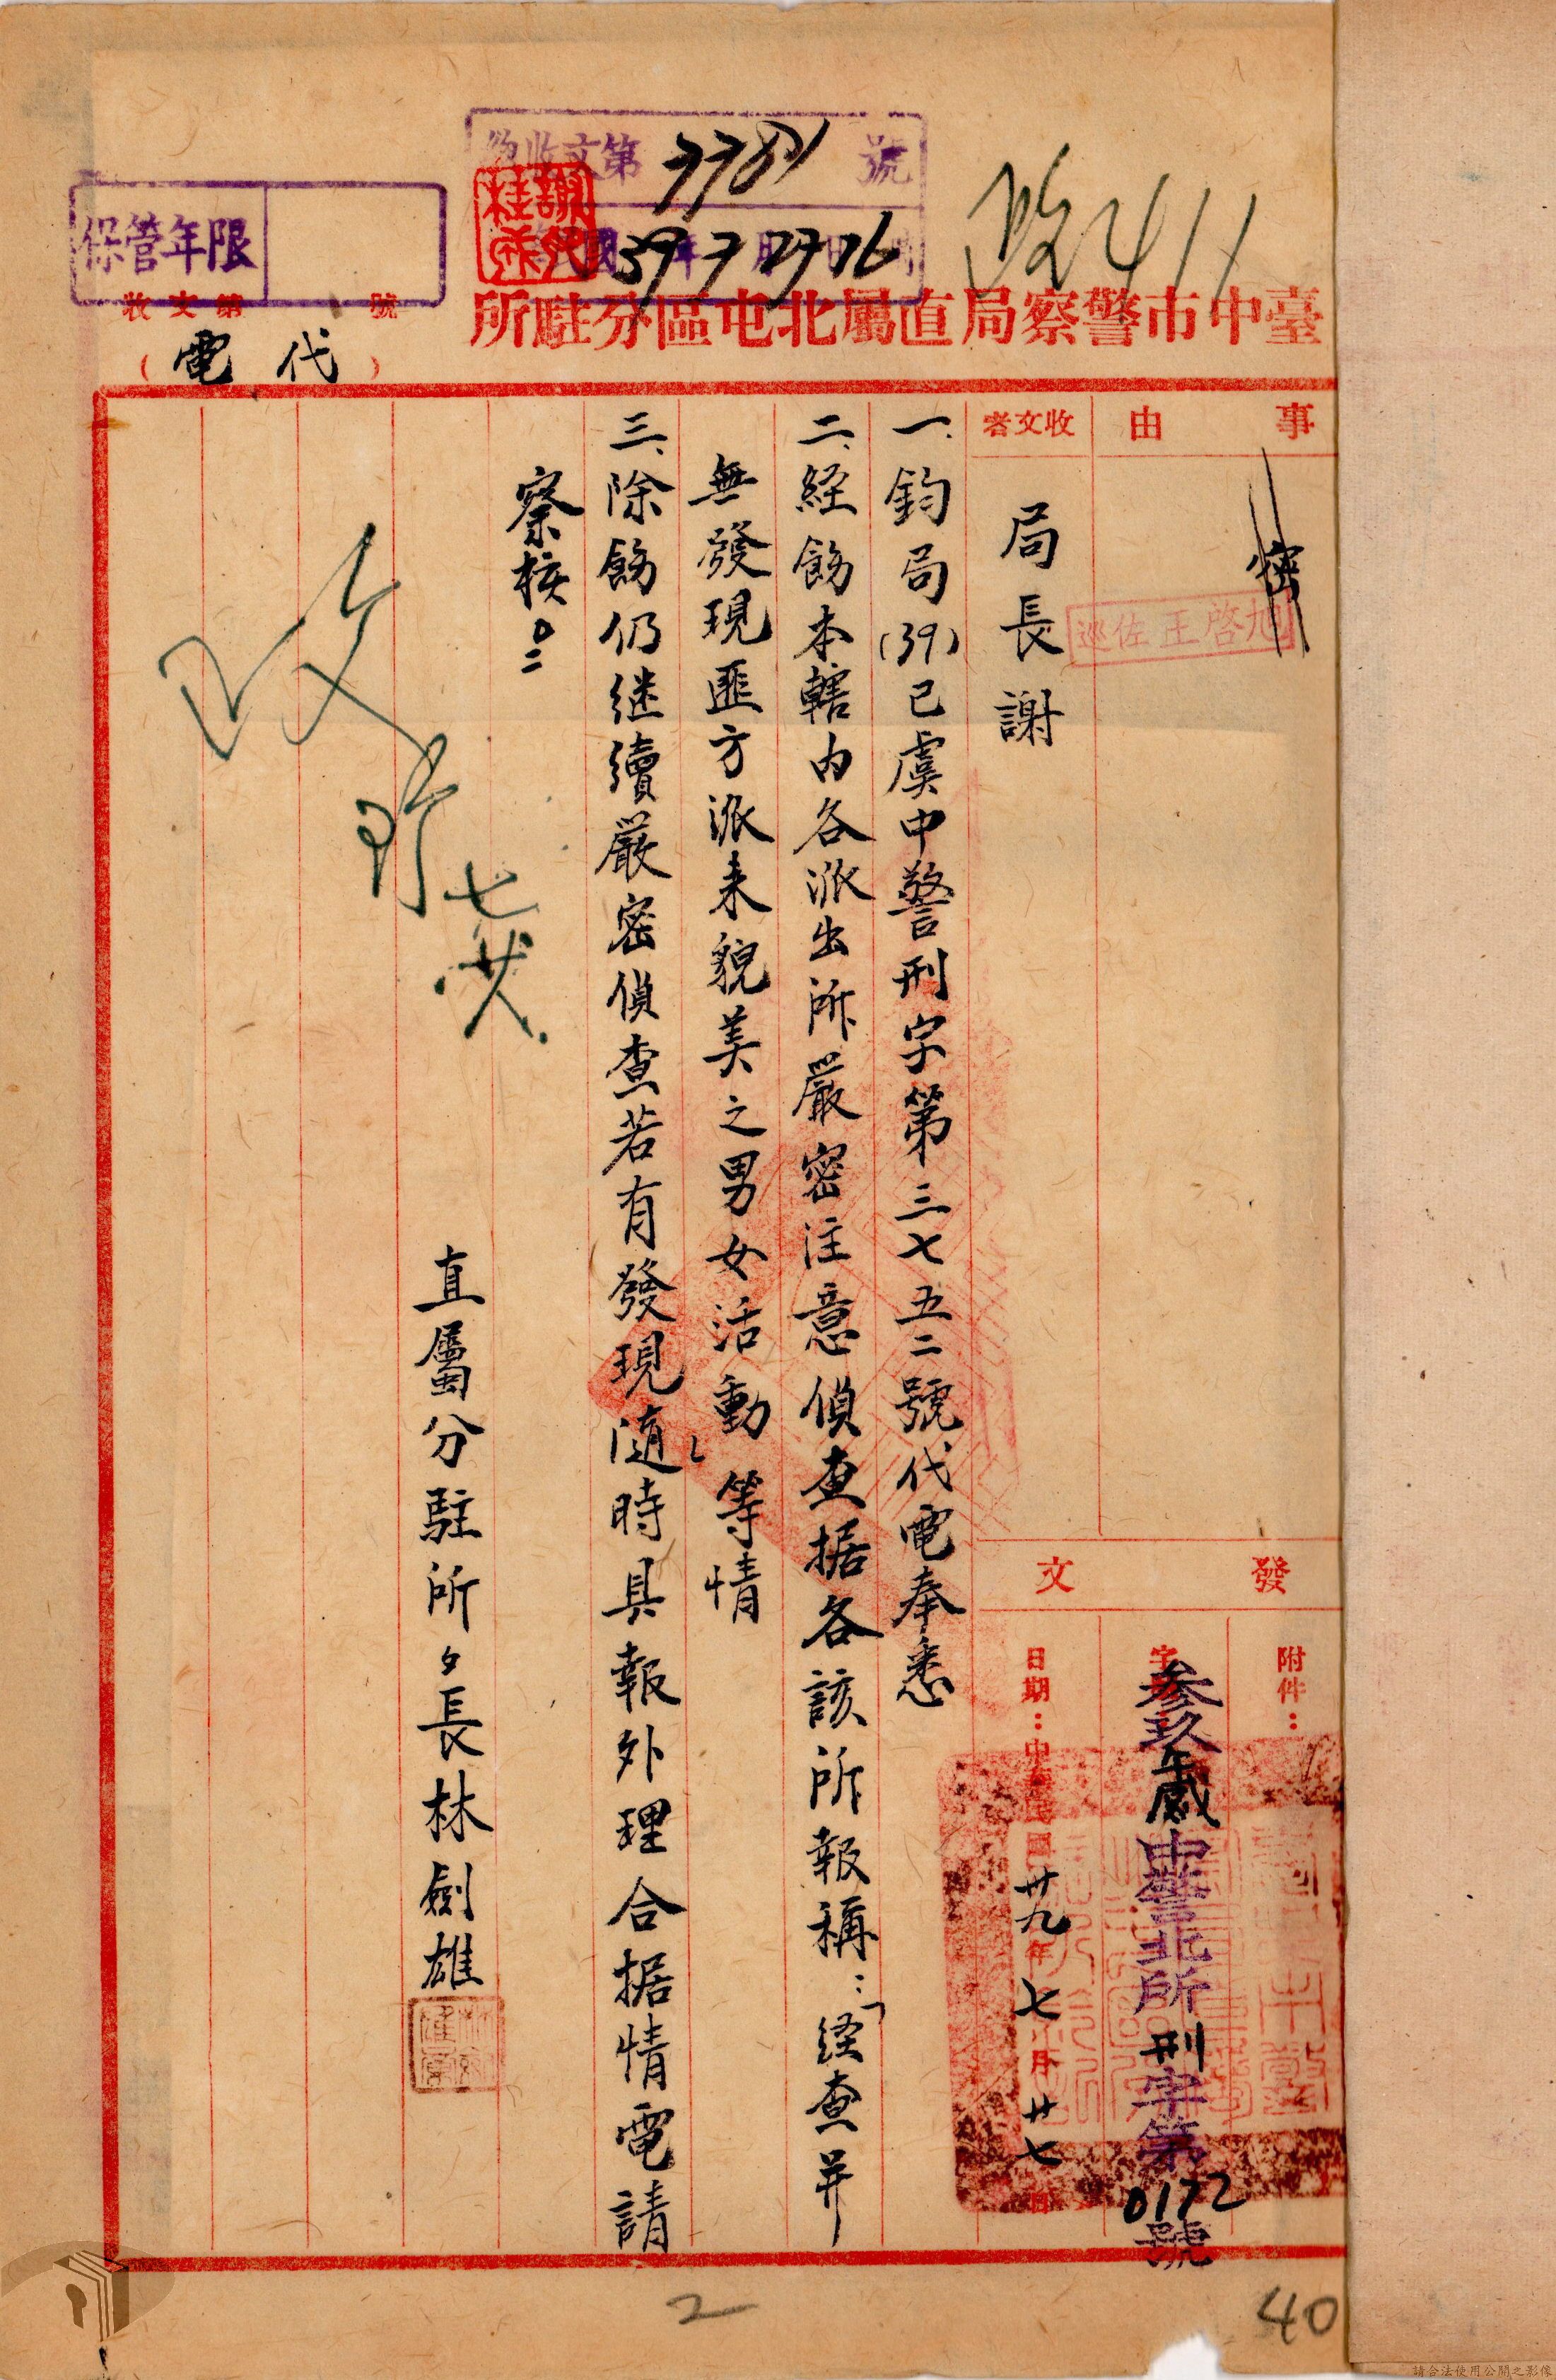 總收文第7781號
39 7 27 16
謝桂
政411
保管年限
收文第 號
(代電)
臺中市警察局直屬北屯區分駐所
事由
密
巡佐王啓旭
收文者
局長謝
發文
附件：
參玖午感中警北所刑字第0172號
日期：中華民國卅九年七月廿七日
一、鈞局(39)已虞中警刑字第三七五二號代電奉悉
二、経飭本轄内各派出所嚴密注意偵查据各該所報稱：「経查并
無發現匪方派来貌美之男女活動」等情
三、除飭仍継續嚴密偵查若有發現随時具報外理合据情電請
察核。
直屬分駐所長林劍雄
七廿八
2
40
請合法使用公開之影像